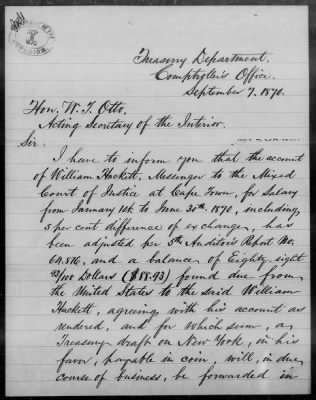 SEP
8
1870
Treasury Department,
Comptroller's Office,
September 7, 1870.
Hon. W. T. Otto,
Acting Secretary of the Interior.
Sir:
I have to inform you that the account
of William Hackett, Messenger to the Mixed
Court of Justice at Cape Town, for Salary
from January 1st. to June 30th 1870, including
5 per cent difference of exchange, has
been adjusted per 5th Auditor's Report No.
64,816, and a balance of Eighty-eight
93/100 Dollars ($88.93) found due from
the United States to the said William
Hackett, agreeing with his account as
rendered, and for which sum, a
Treasury draft on New York, in his
favor, payable in coin, will, in due
course of business, be forwarded in